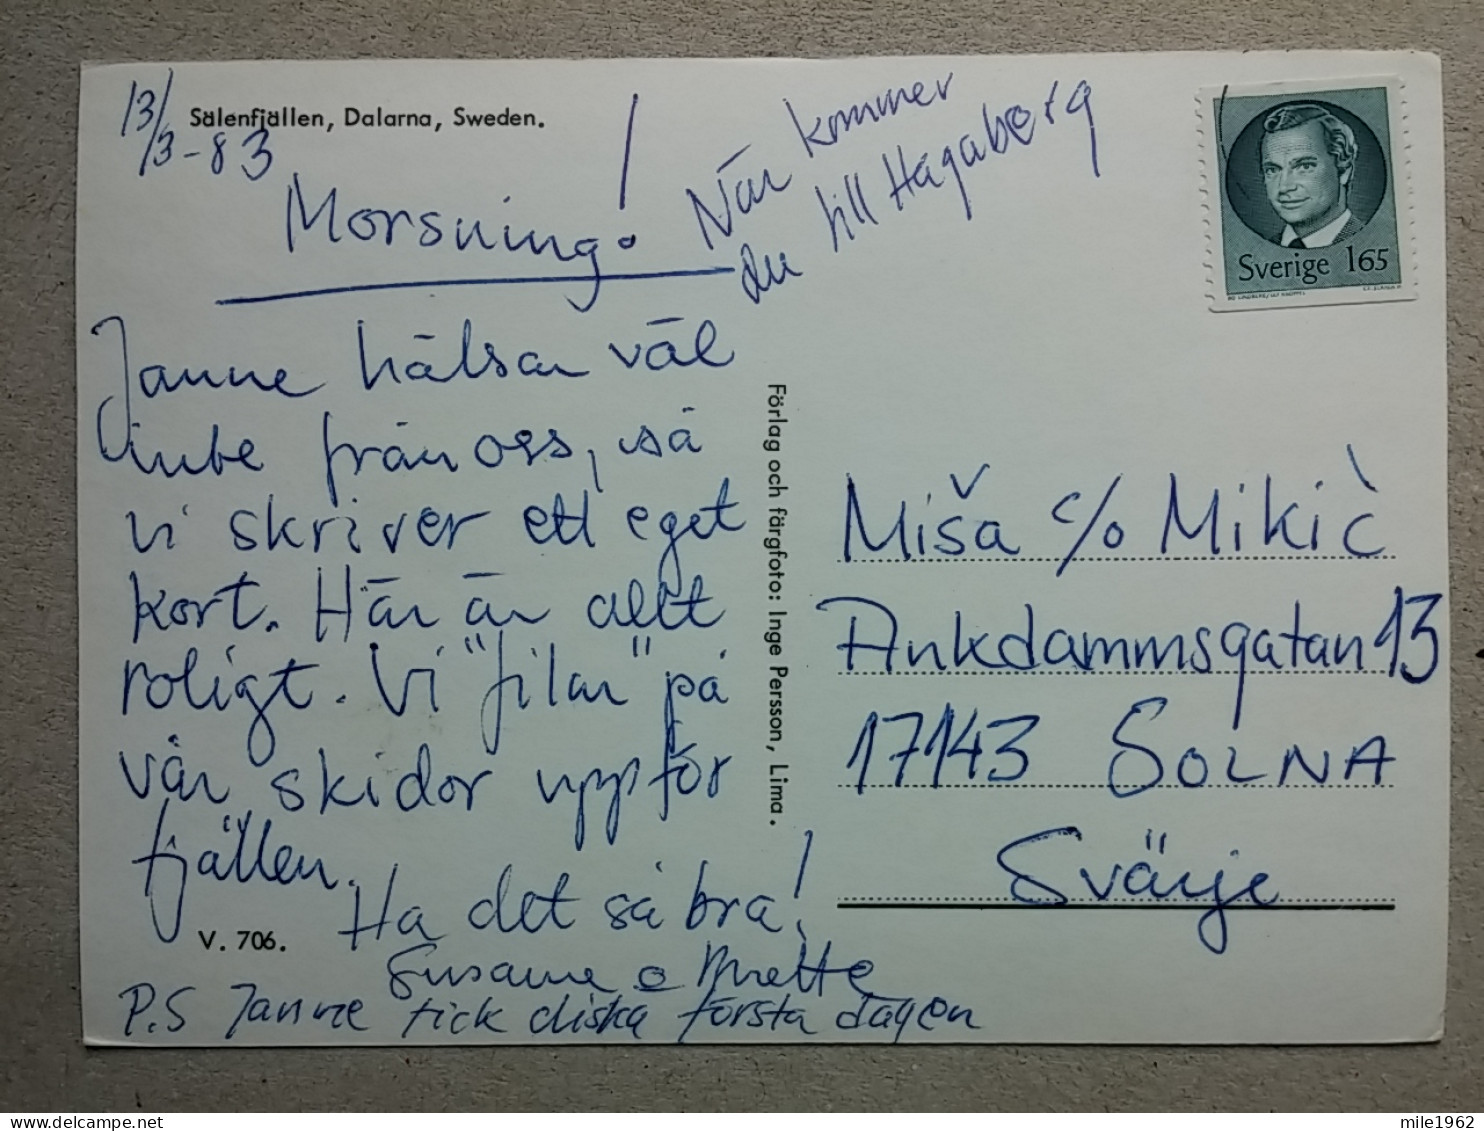 13/3-83
Sälenfjällen, Dalarna, Sweden.
Morsning!
När kommer
du till Hagaberg
Janne hälsar väl
inte från oss, så
vi skriver ett eget
kort. Här är allt
roligt. Vi "filar" på
vår skidor uppför
fjällen.
Ha det så bra!
Susanne o Mette
P.S Janne fick diska första dagen
V. 706.
Förlag och färgfoto: Inge Persson, Lima.
Sverige 165
Miša c/o Mikič
Ankdammsgatan 13
17143 SOLNA
Svärje
mile1962